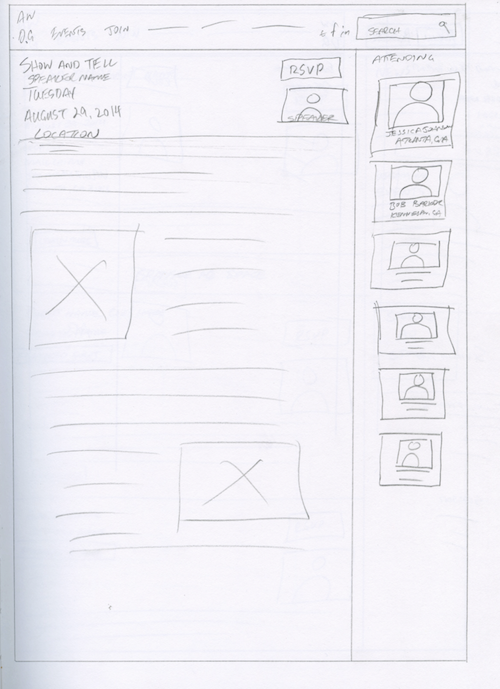 AW
D.G EVENTS JOIN
t f in
SEARCH
SHOW AND TELL
SPEAKER NAME
TUESDAY
AUGUST 29, 2014
LOCATION
RSVP
SPEAKER
ATTENDING
JESSICA
ATLANTA, GA
BOB BARKER